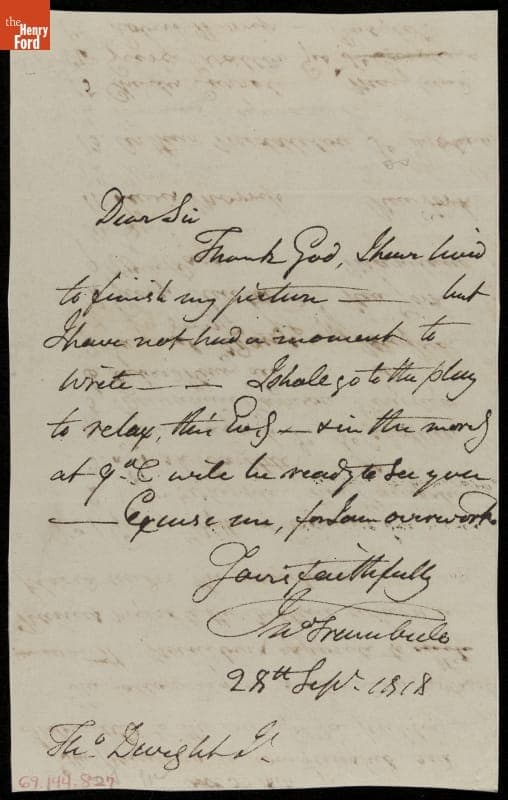 the
Henry
Ford
Dear Sir
Thank God, I have lived
to finish my picture — but
I have not had a moment to
write — — I shall go to the play
to relax, this Eveg — & in the morng
at 9 o.C will be ready to see you
— Excuse me, for I am overwork
Yours faithfully
Jno Trumbull
28th Sepr. 1818
Tho Dwight Jr.
69.144.827